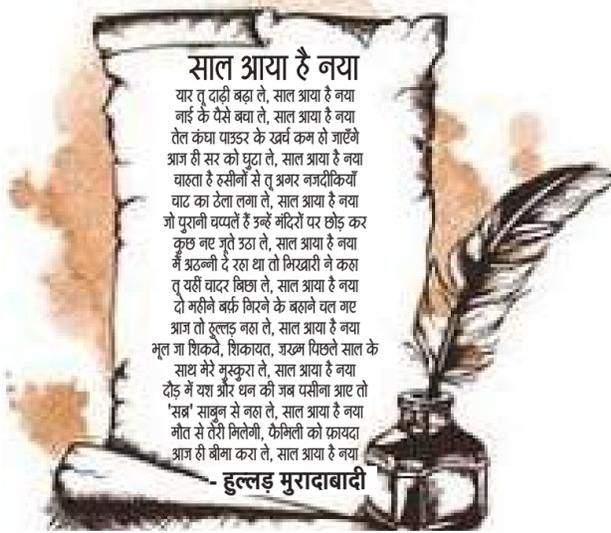 साल आया है नया
यार तू दाढ़ी बढ़ा ले, साल आया है नया
नाई के पैसे बचा ले, साल आया है नया
तेल कंघा पाउडर के खर्च कम हो जाएँगे
आज ही सर को घुटा ले, साल आया है नया
चाहता है हसीनों से तू अगर नजदीकियाँ
चाट का ठेला लगा ले, साल आया है नया
जो पुरानी चप्पलें हैं उन्हें मंदिरों पर छोड़ कर
कुछ नए जूते उठा ले, साल आया है नया
मैं अठन्नी दे रहा था तो भिखारी ने कहा
तू यहीं चादर बिछा ले, साल आया है नया
दो महीने बर्फ़ गिरने के बहाने चल गए
आज तो हुल्लड़ नहा ले, साल आया है नया
भूल जा शिकवे, शिकायत, जख्म पिछले साल के
साथ मेरे मुस्कुरा ले, साल आया है नया
दौड़ में यश और धन की जब पसीना आए तो
'सब्र' साबुन से नहा ले, साल आया है नया
मौत से तेरी मिलेगी, फैमिली को फ़ायदा
आज ही बीमा करा ले, साल आया है नया
- हुल्लड़ मुरादाबादी